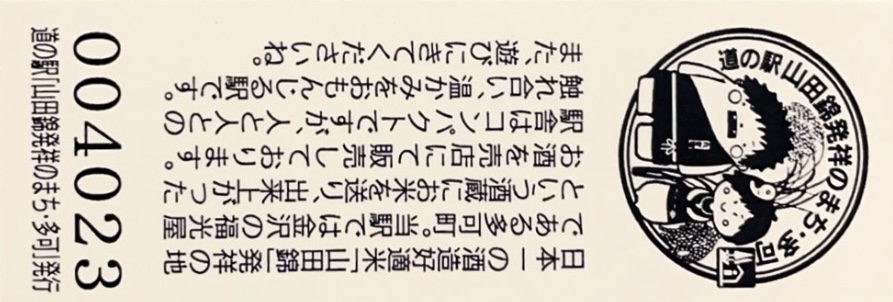 道の駅 山田錦発祥のまち・多可
日本一の酒造好適米「山田錦」発祥の地
である多可町。当駅では金沢の福光屋
という酒蔵にお米を送り、出来上がった
お酒を売店にて販売しております。
駅舎はコンパクトですが、人と人との
触れ合い、温かみをおもんじる駅です。
また、遊びにきてくださいね。
004023
道の駅「山田錦発祥のまち・多可」発行